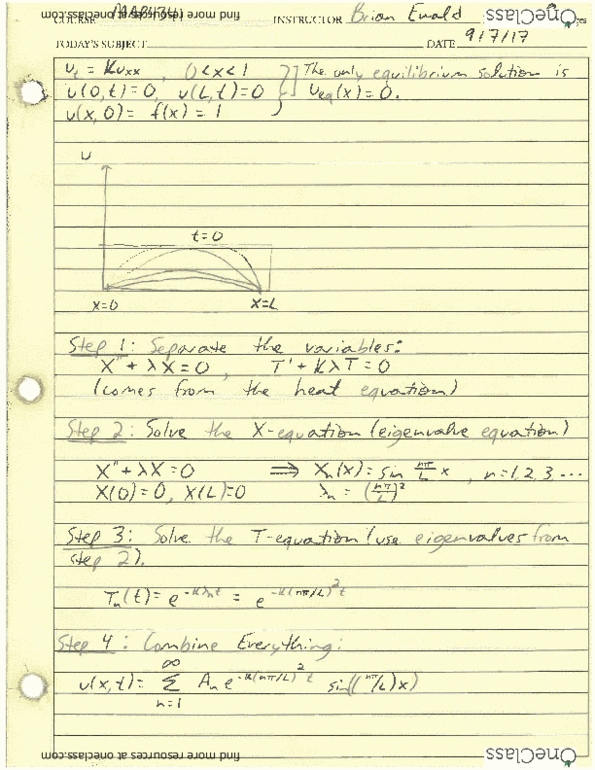 find more resources at oneclass.com
OneClass
COURSE INSTRUCTOR Brian Ewald
TODAY'S SUBJECT DATE 9/7/17
u_t = k u_xx , 0<x<1 } The only equilibrium solution is
u(0,t)=0, u(L,t)=0 u_eq(x)=0.
u(x,0)= f(x)=1
u
t=0
x=0 x=L
Step 1: Separate the variables:
X'' + λX=0 , T' + kλT=0
(comes from the heat equation)
Step 2: Solve the X-equation (eigenvalue equation)
X'' + λX =0 ⟹ X_n(x)= sin nπ/L x , n=1,2,3...
X(0)=0, X(L)=0 λ_n = (nπ/L)^2
Step 3: Solve the T-equation (use eigenvalues from
step 2).
T_n(t)= e^{-kλ_n t} = e^{-k(nπ/L)^2 t}
Step 4: Combine Everything:
u(x,t)= ∑_{n=1}^{∞} A_n e^{-k(nπ/L)^2 t} sin((nπ/L)x)
find more resources at oneclass.com
OneClass